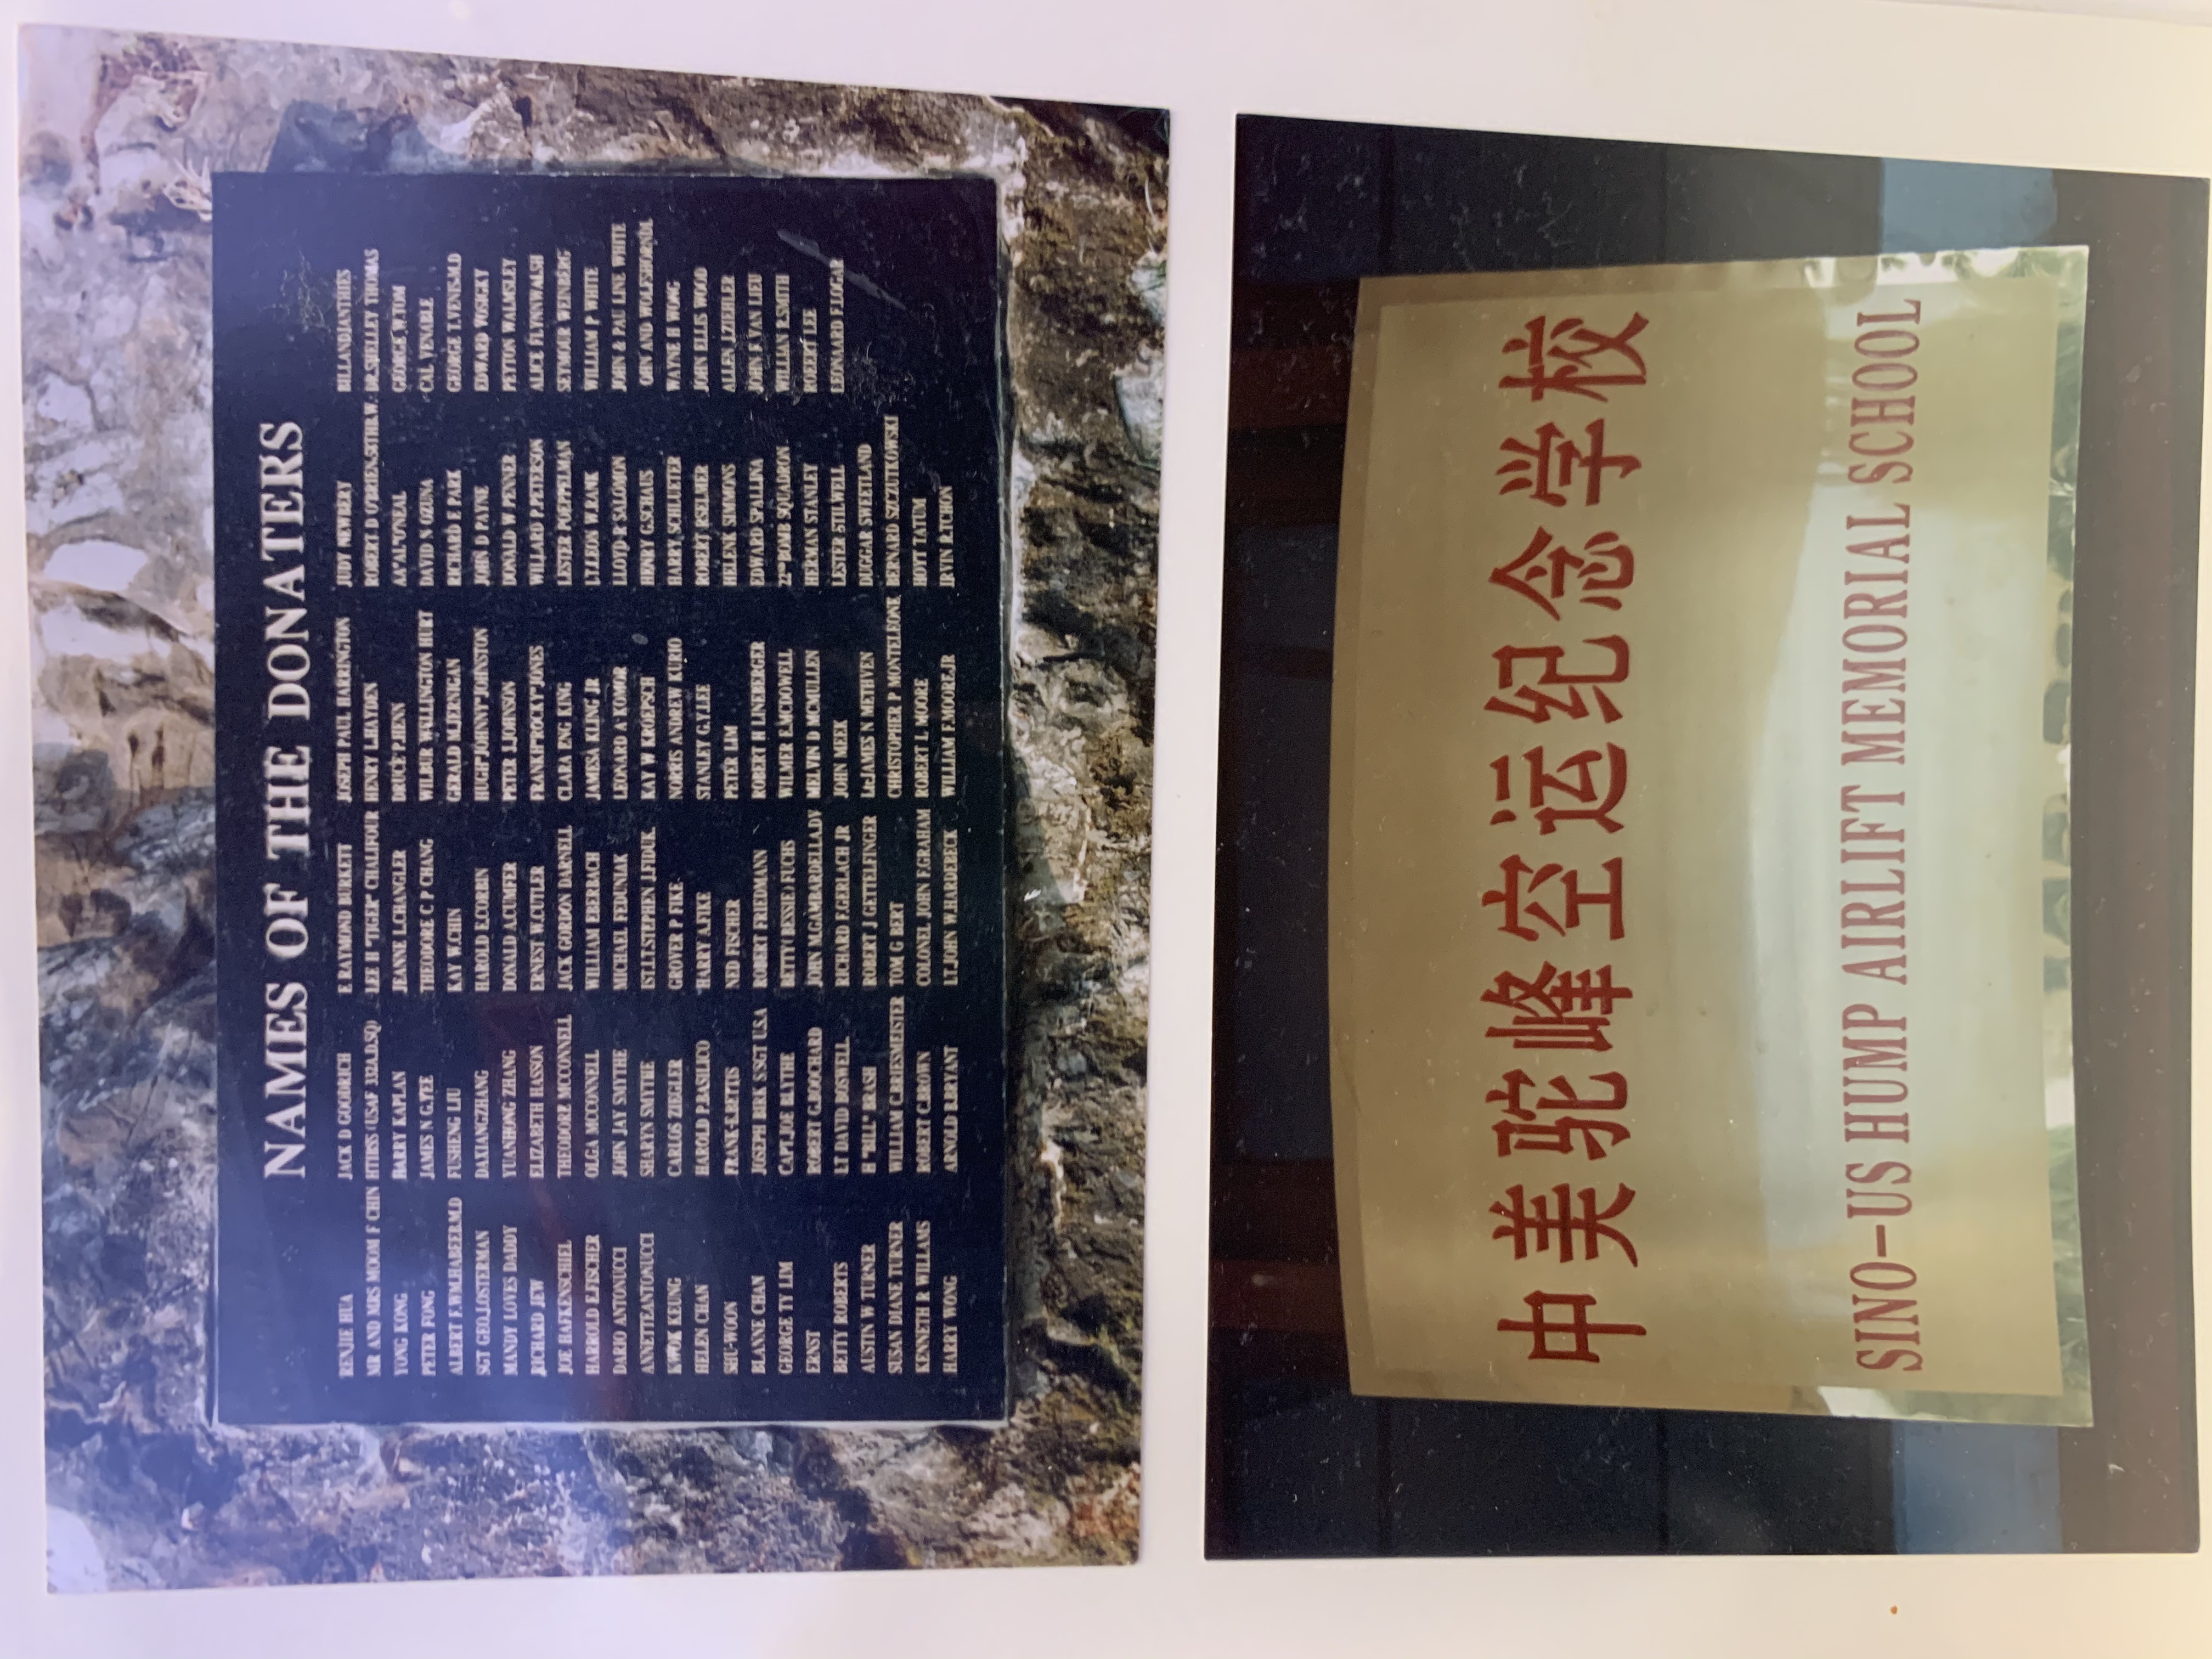 NAMES OF THE DONATERS
RENJIE HUA
MR AND MRS MOOM F CHIN
YONG KONG
PETER FONG
ALBERT F.WM.HADEER.M.D
SGT GEO.LOSTERMAN
MANDY LOVES DADDY
RICHARD JEW
JOE HAFKENSCHIEL
HAROLD E.FISCHER
DARIO ANTONUCCI
ANNETTEZANTONUCCI
KWOK KEUNG
HELEN CHAN
SHU-WOON
BLANNE CHAN
GEORGE TY LIM
ERNST
BETTY ROBERTS
AUSTIN W TURNER
SUSAN DIANE TURNER
KENNETH R WILLAMS
HARRY WONG
JACK D GOODRICH
HTHRS (USAF 3D.AD.SQ)
BARRY KAPLAN
JAMES N G.YEE
FUSHENG LIU
DAXIANGZHANG
YUANHONG ZHANG
ELIZABETH EASSON
THEODORE MCCONNELL
OLGA MCCONNELL
JOHN JAY SMYTHE
SHARYN SMYTHE
CARLOS ZIEGLER
HAROLD P.BASILICO
FRANK-R.BETTIS
JOSEPH BIRK S.SGT U.S.A
CAPT.JOE BLYTHE
ROBERT G.BOUCHARD
LT DAVID BOSWELL
H "BILL" BRASH
WILLIAM G.BRIESMEISTER
ROBERT C.BROWN
ARNOLD R.BRYANT
E RAYMOND BURKETT
LEE H "TIGER" CHALIFOUR
JEANNE L.CHANGLER
THEODORE C P CHANG
KAY W.CHIN
HAROLD E.CORBIN
DONALD A.CUMFER
ERNEST W.CUTLER
JACK GORDON DARNELL
WILLIAM EBERBACH
MICHAEL FEDUNAK
1ST.LT.STEPHEN J.FIDUK
GROVER P FIKE
HARY A.FIKE
NED FISCHER
ROBERT FRIEDMANN
BETTY(BESSIE) FUCHS
JOHN M.GAMBARDELLADV
RICHARD F.GERLACH JR
ROBERT J GETTELFINGER
TOM G BEY
COLONEL JOHN F.GRAHAM
LT.JOHN W.HARDERICK
JOSEPH PAUL HARRINGTON
HENRY L.HAYDEN
BRUCE P.HENN
WILBUR WELLINGTON HURT
GERALD M.JERNIGAN
HUGH"JOHNNY"JOHNSTON
PETER L.JOHNSON
FRANKIE"ROCKY"JONES
CLARA ENG KING
JAMESA KLING JR
LEONARD A YOMOR
KAY W KROEPSCH
NORRIS ANDREW KURIO
STANLEY G.LEE
PETER LIM
ROBERT H LINEBERGER
WILMER E.MCDOWELL
MELVIN D MCMULLEN
JOHN MEX
Lt.JAMES N METHVEN
CHRISTOPHER P MONTELEONE
ROBERT L MOORE
WILLIAM F.MOORE.JR
JUDY NEWBERY
ROBERT D O'BRIEN.5THR.W.
AP"AL"O'NEAL
DAVID S OZUNA
RICHARD F PARK
JOHN D PAYNE
DONALD W.PENER
WILLARD P.PETERSON
LESTER POEPPELMAN
LT.LEON W.RANK
LLOYD R SALOMON
HENRY G.SCHAUS
HARRY SCHLUETER
ROBERT J.SEILER
HELEN K SIMMONS
EDWARD SPALINA
22"BOMB SQUADRON
HERMAN STANLEY
LESTER STILWELL
DUGGAR SWETLAND
BERNARD SZCZUTKOWSKI
HOYT TATUM
IRVIN R.TCHON
BILLANDJANTHIES
DR.SHELLEY THOMAS
GEORGE W.TOM
CAL VENABLE
GEORGE T.VENIS.M.D
EDWARD VOSICKY
PEYTON WALMSLEY
ALICE FLYNNWALSH
SEYMOUR WEINBERG
WILLIAM P WHITE
JOHN & PAU LINE WHITE
WAYNE H WONG
JOHN ELLS WOOD
ALLEN J.ZIEHLER
JOHN S VAN LIEU
WILLIAN R.SMITH
ROBERT LEE
LEONARD F.J.OGAR
中美驼峰空运纪念学校
SINO-US HUMP AIRLIFT MEMORIAL SCHOOL